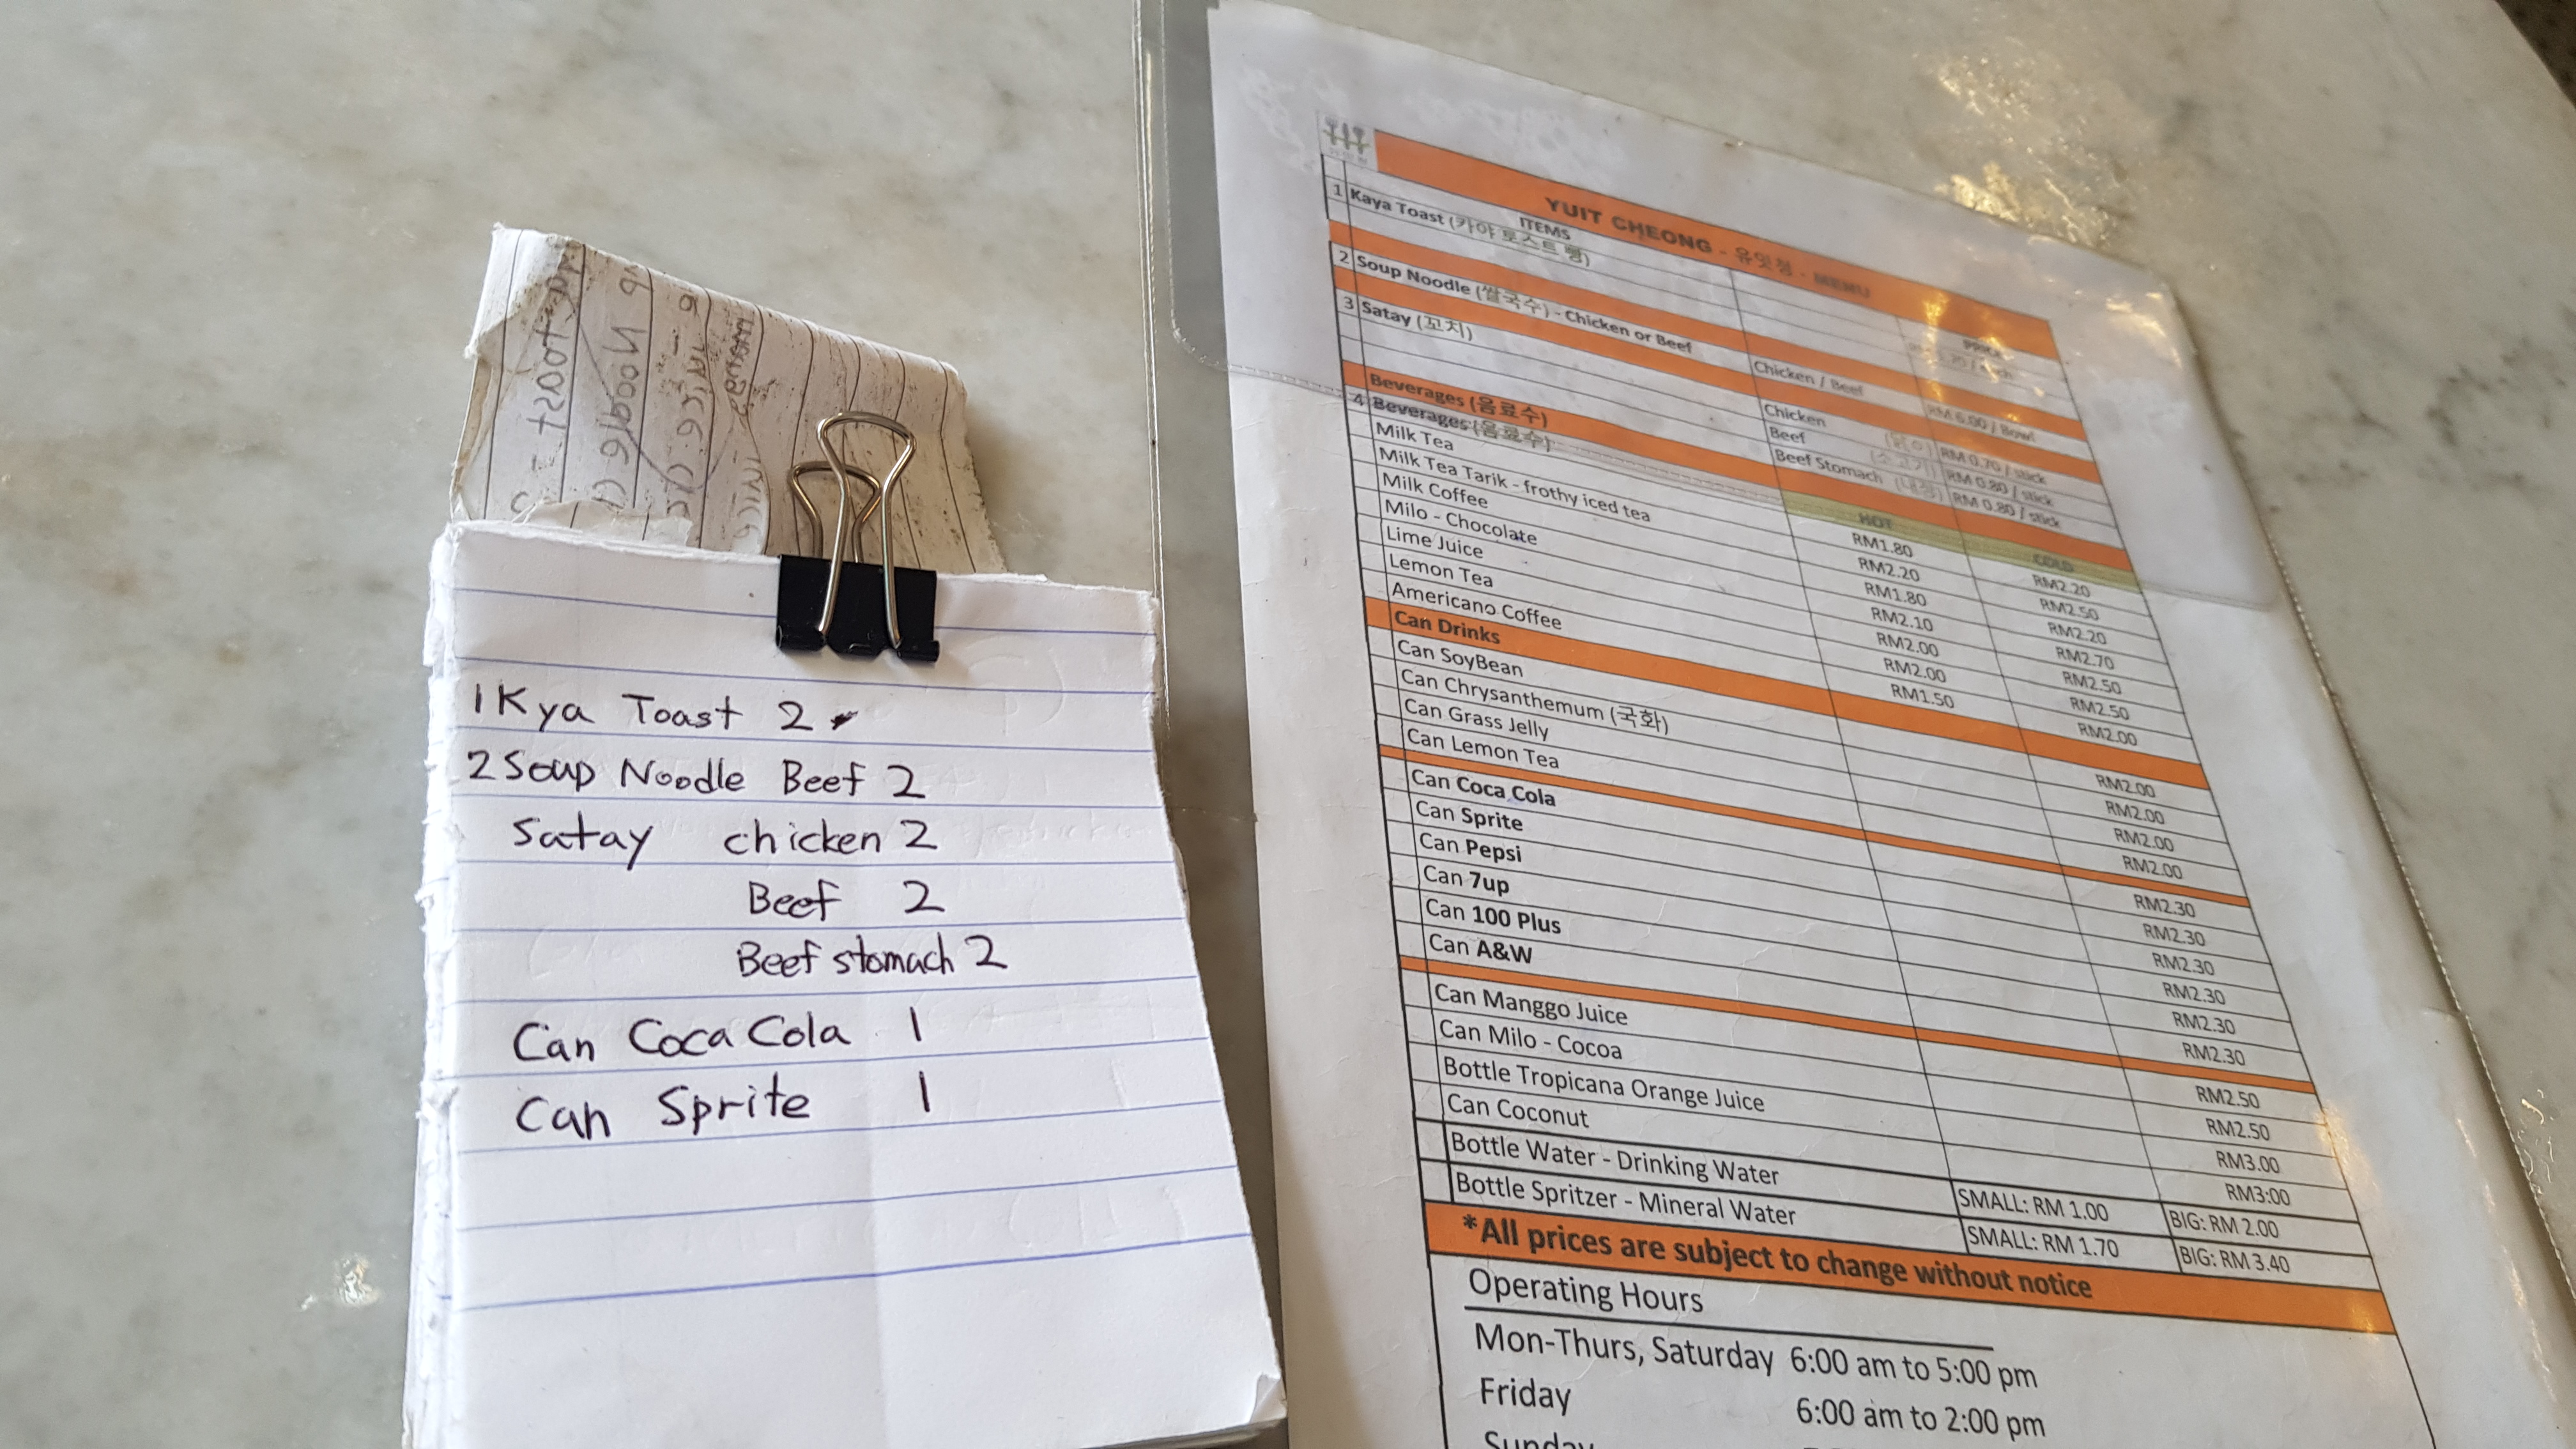 1 Kya Toast 2
2 Soup Noodle Beef 2
Satay chicken 2
Beef 2
Beef stomach 2
Can Coca Cola 1
Can Sprite 1
YUIT CHEONG - 유잇청 - MENU
ITEMS PRICE
1 Kaya Toast (카야 토스트 빵)
2 Soup Noodle (쌀국수) - Chicken or Beef Chicken / Beef RM 6.00 / Bowl
3 Satay (꼬치) Chicken RM 0.70 / stick
Beef (소고기) RM 0.80 / stick
Beef Stomach (내장) RM 0.80 / stick
Beverages (음료수)
4 Beverages (음료수) HOT COLD
Milk Tea RM1.80 RM2.20
Milk Tea Tarik - frothy iced tea RM2.20 RM2.50
Milk Coffee RM1.80 RM2.20
Milo - Chocolate RM2.10 RM2.70
Lime Juice RM2.00 RM2.50
Lemon Tea RM2.00 RM2.50
Americano Coffee RM1.50 RM2.00
Can Drinks
Can SoyBean RM2.00
Can Chrysanthemum (국화) RM2.00
Can Grass Jelly RM2.00
Can Lemon Tea RM2.00
Can Coca Cola RM2.30
Can Sprite RM2.30
Can Pepsi RM2.30
Can 7up RM2.30
Can 100 Plus RM2.30
Can A&W RM2.30
Can Manggo Juice RM2.50
Can Milo - Cocoa RM2.50
Bottle Tropicana Orange Juice RM3.00
Can Coconut RM3:00
Bottle Water - Drinking Water SMALL: RM 1.00 BIG: RM 2.00
Bottle Spritzer - Mineral Water SMALL: RM 1.70 BIG: RM 3.40
*All prices are subject to change without notice
Operating Hours
Mon-Thurs, Saturday 6:00 am to 5:00 pm
Friday 6:00 am to 2:00 pm
Sunday